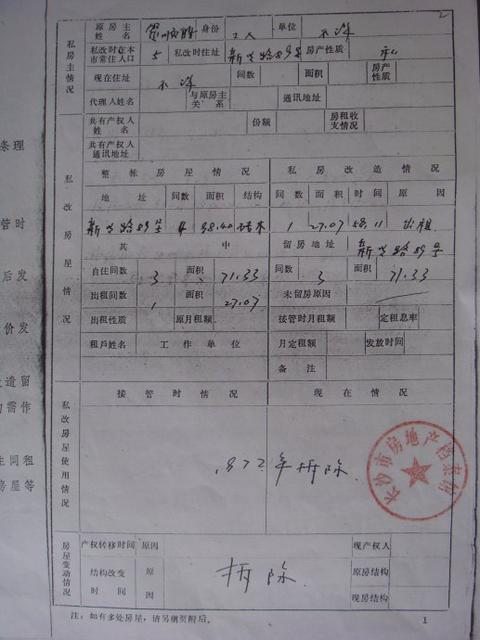 条理
管时
后发
价发
造留
需作
生同租
房屋等
2
私房主情况
原房主姓名 身份 工人 单位 不详
私改时在本市常住人口 5 私改时住址 房产性质 私
现在住址 不详 间数 面积 房产性质
代理人姓名 与原房主关系 通讯地址
共有产权人姓名 份额 房租收支情况
共有产权人通讯地址
私改房屋情况
整栋房屋情况 私房改造情况
地址 间数 面积 结构 间数 面积 时间 原因
4 砖木 1 27.07 58.11 出租
其中 留房地址
自住间数 3 面积 71.33 间数 3 面积 71.33
出租间数 1 面积 27.07 未留房原因
出租性质 原月租额 接管时月租额 定租息率
租戶姓名 工作单位 月定租额 发放时间
备注
私改房屋使用情况
接管时情况 现在情况
年拆除
长沙市房地产档案馆
房屋变动情况
产权转移时间 原因 现产权人
结构改变时间 原因 拆除 原房结构
现房结构
注：如有多处房屋，请另纲页附后。
1